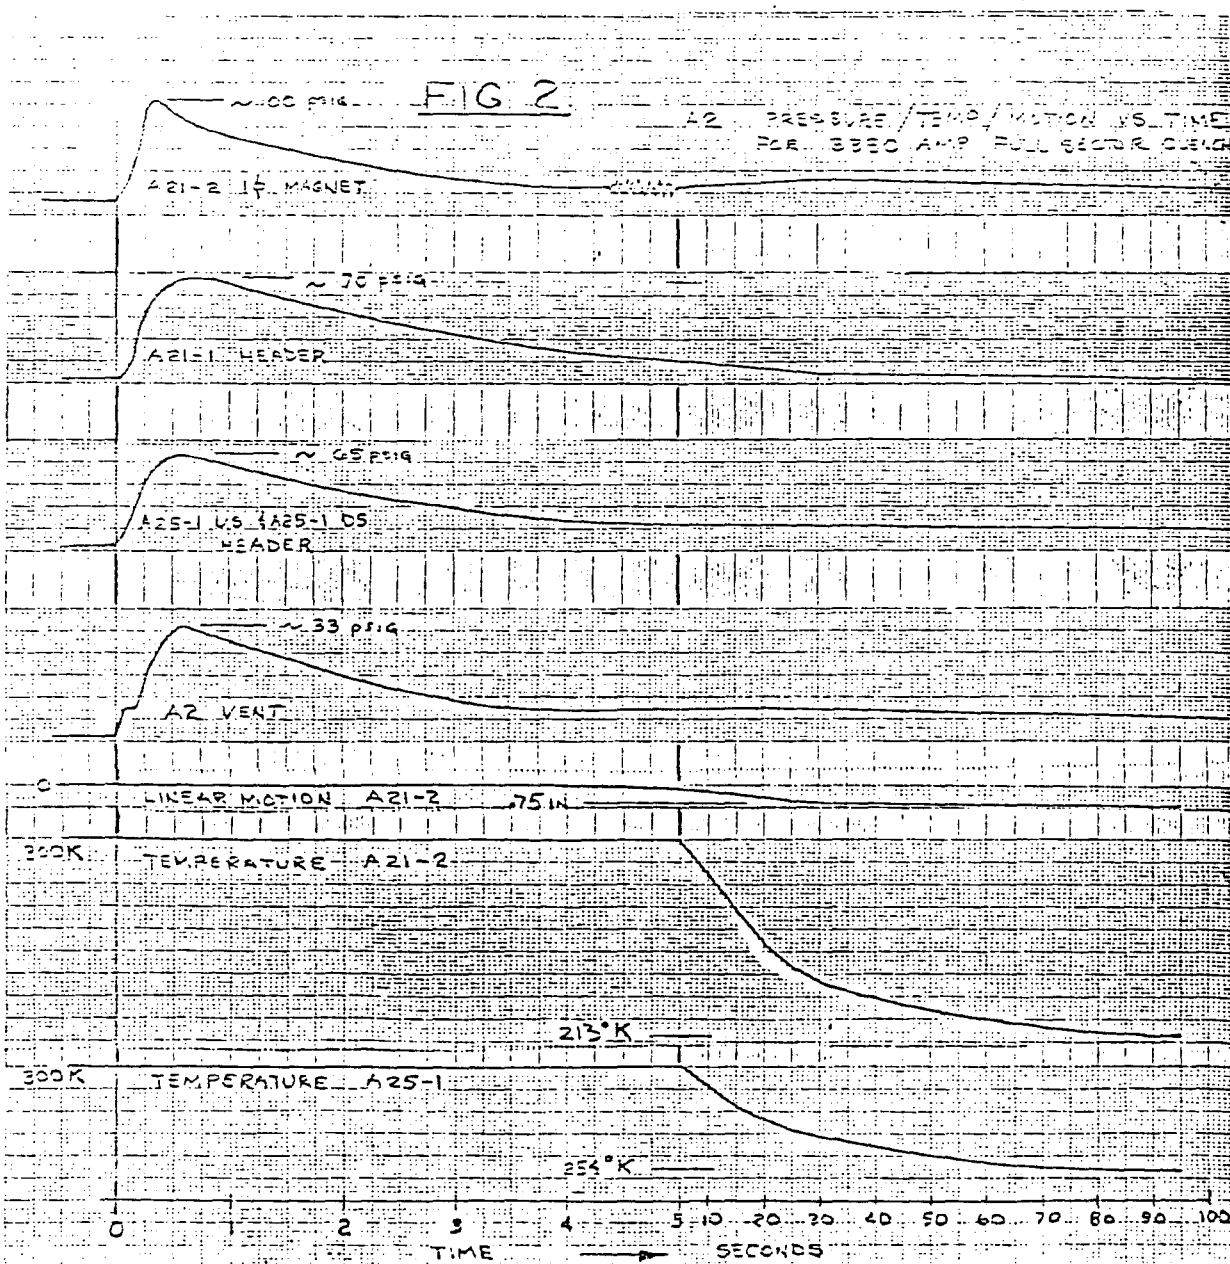 FIG 2
PRESSURE/TEMP/MOTION VS TIME
FULL SECTOR QUENCH
A21-2 1ϕ MAGNET
psig
A21-1 HEADER
~ 65 psig
A25-1 US & A25-1 DS
HEADER
~ 33 psig
A2 VENT
0
LINEAR MOTION A21-2 .75 IN
300K
TEMPERATURE A21-2
213°K
300K
TEMPERATURE A25-1
0 1 2 3 4 5 10 20 30 40 50 60 70 80 90 100
TIME → SECONDS